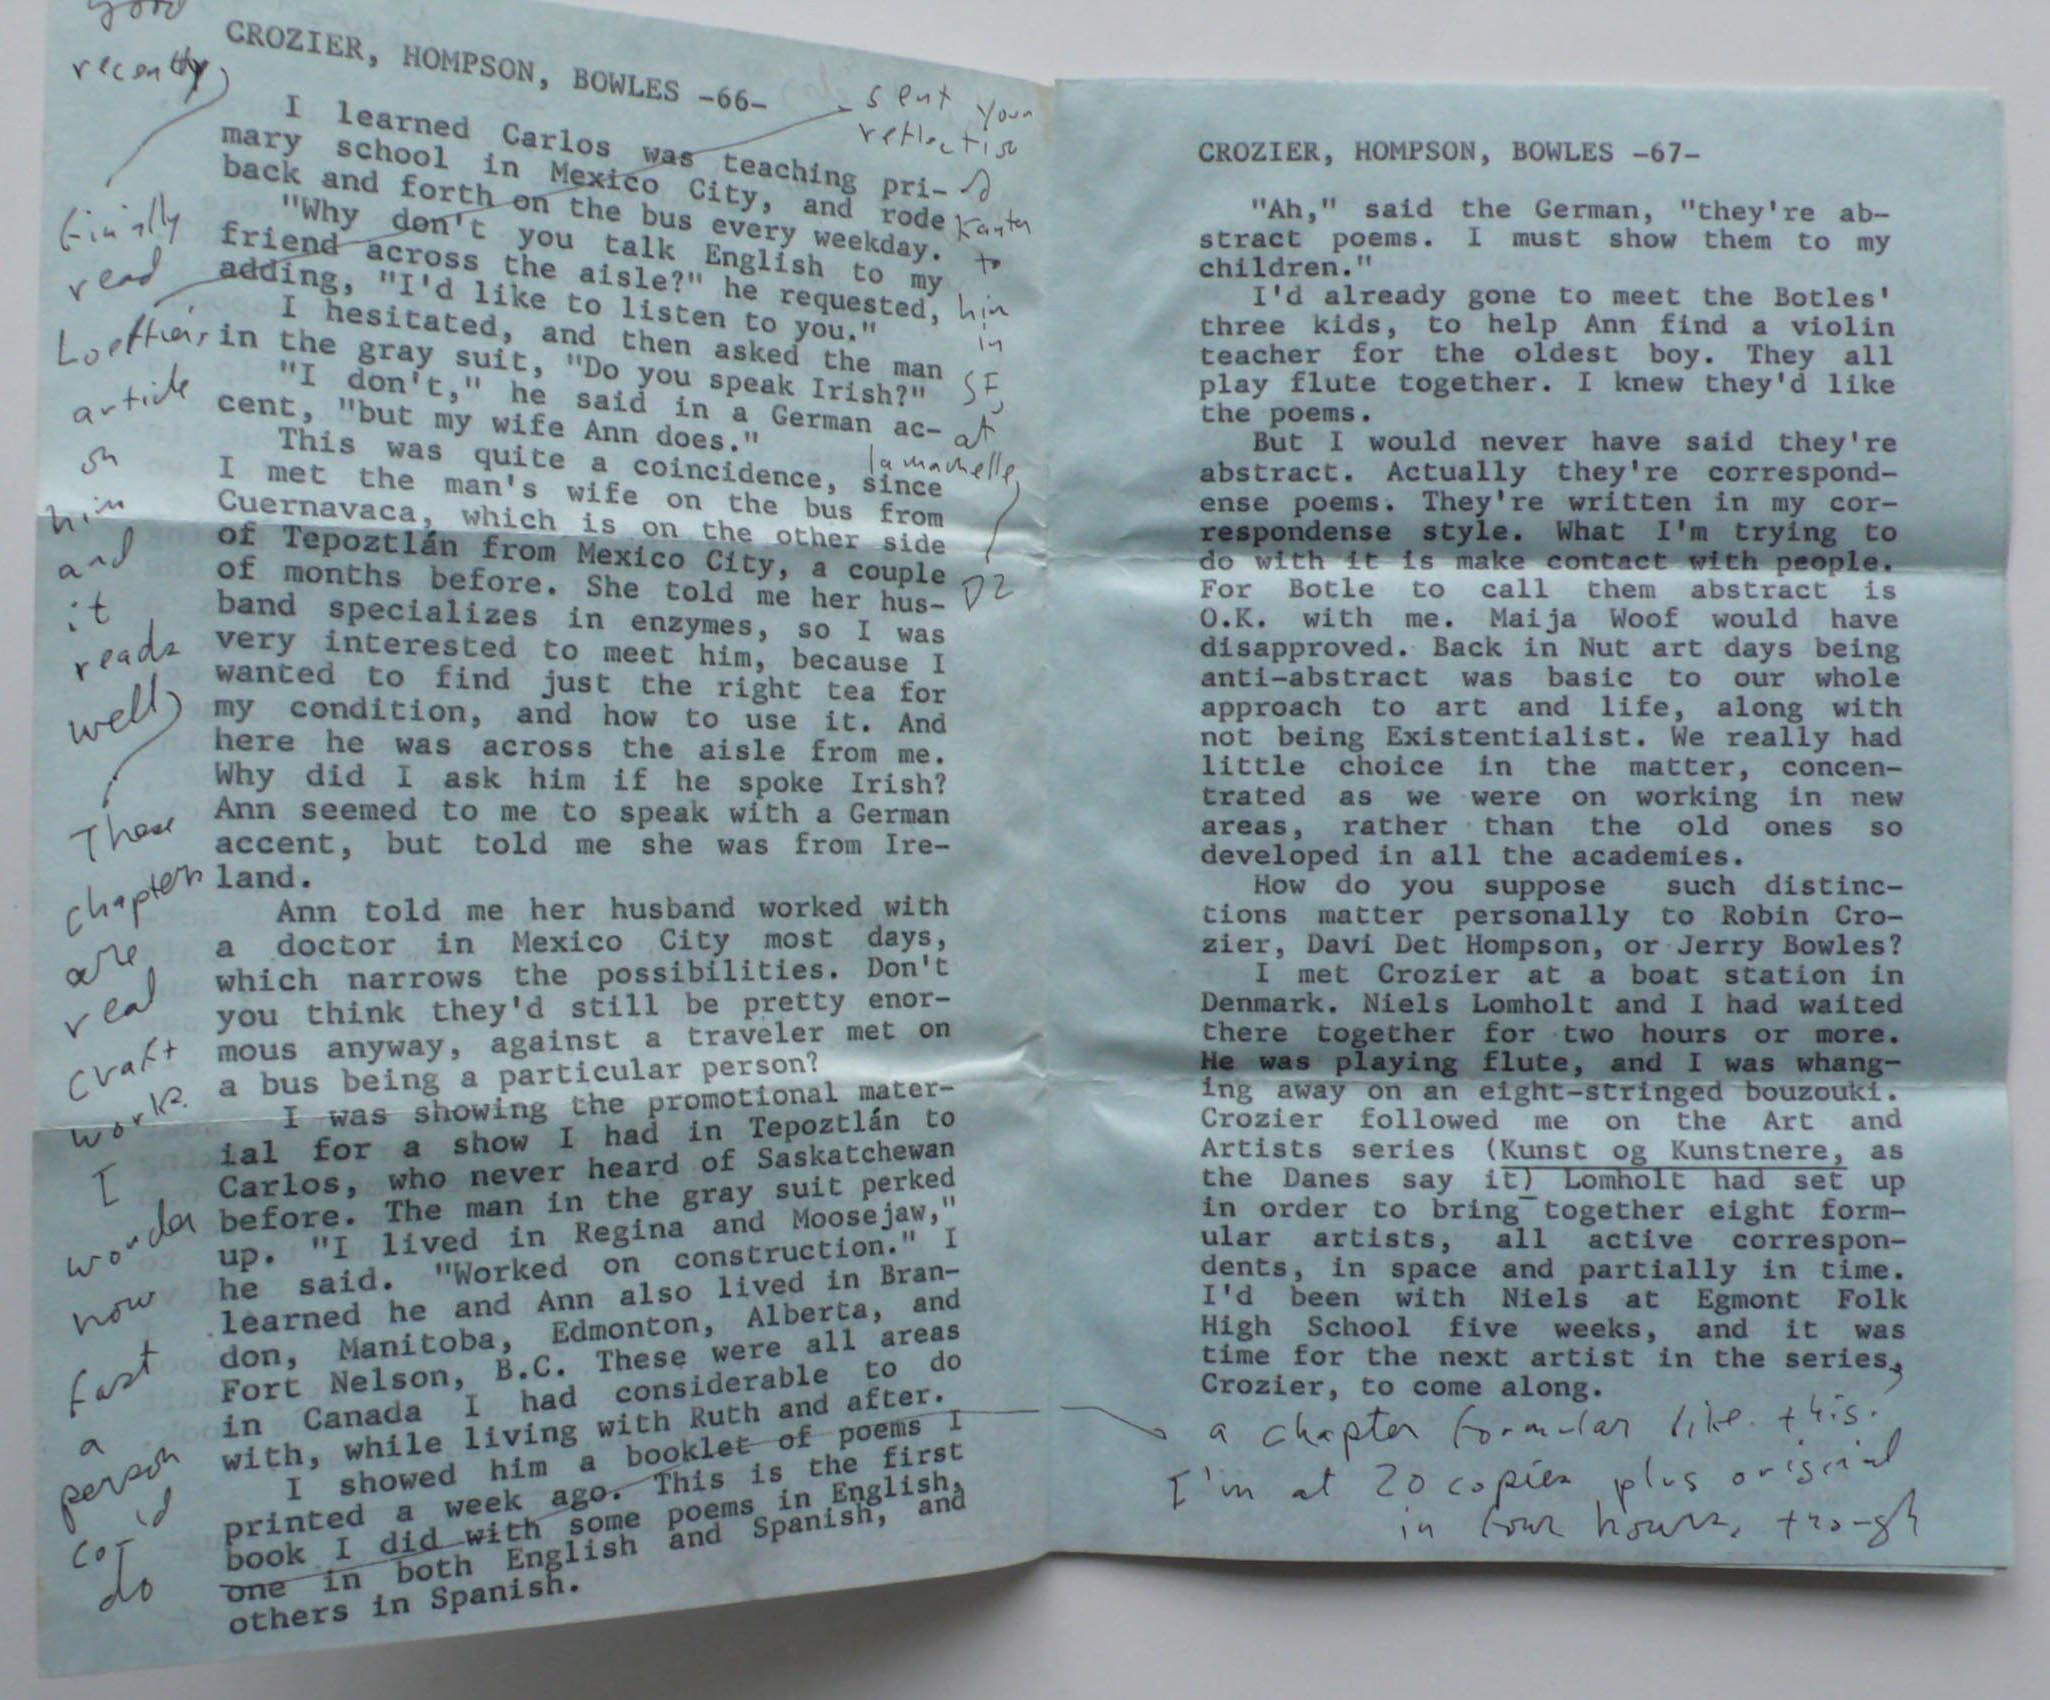 good
recently
finally
read
article
on
him
and
it
reads
well
These
chapters
are
real
craft
work.
I
wonder
how
fast
a
person
could
do
CROZIER, HOMPSON, BOWLES -66-
I learned Carlos was teaching pri-
mary school in Mexico City, and rode
back and forth on the bus every weekday.
"Why don't you talk English to my
friend across the aisle?" he requested,
adding, "I'd like to listen to you."
I hesitated, and then asked the man
in the gray suit, "Do you speak Irish?"
"I don't," he said in a German ac-
cent, "but my wife Ann does."
This was quite a coincidence, since
I met the man's wife on the bus from
Cuernavaca, which is on the other side
of Tepoztlán from Mexico City, a couple
of months before. She told me her hus-
band specializes in enzymes, so I was
very interested to meet him, because I
wanted to find just the right tea for
my condition, and how to use it. And
here he was across the aisle from me.
Why did I ask him if he spoke Irish?
Ann seemed to me to speak with a German
accent, but told me she was from Ire-
land.
Ann told me her husband worked with
a doctor in Mexico City most days,
which narrows the possibilities. Don't
you think they'd still be pretty enor-
mous anyway, against a traveler met on
a bus being a particular person?
I was showing the promotional mater-
ial for a show I had in Tepoztlán to
Carlos, who never heard of Saskatchewan
before. The man in the gray suit perked
up. "I lived in Regina and Moosejaw,"
he said. "Worked on construction." I
learned he and Ann also lived in Bran-
don, Manitoba, Edmonton, Alberta, and
Fort Nelson, B.C. These were all areas
in Canada I had considerable to do
with, while living with Ruth and after.
I showed him a booklet of poems I
printed a week ago. This is the first
book I did with some poems in English,
one in both English and Spanish, and
others in Spanish.
sent your
reflection
to
him
in
SF,
at
CROZIER, HOMPSON, BOWLES -67-
"Ah," said the German, "they're ab-
stract poems. I must show them to my
children."
I'd already gone to meet the Botles'
three kids, to help Ann find a violin
teacher for the oldest boy. They all
play flute together. I knew they'd like
the poems.
But I would never have said they're
abstract. Actually they're correspond-
ense poems. They're written in my cor-
respondense style. What I'm trying to
do with it is make contact with people.
For Botle to call them abstract is
O.K. with me. Maija Woof would have
disapproved. Back in Nut art days being
anti-abstract was basic to our whole
approach to art and life, along with
not being Existentialist. We really had
little choice in the matter, concen-
trated as we were on working in new
areas, rather than the old ones so
developed in all the academies.
How do you suppose such distinc-
tions matter personally to Robin Cro-
zier, Davi Det Hompson, or Jerry Bowles?
I met Crozier at a boat station in
Denmark. Niels Lomholt and I had waited
there together for two hours or more.
He was playing flute, and I was whang-
ing away on an eight-stringed bouzouki.
Crozier followed me on the Art and
Artists series (Kunst og Kunstnere, as
the Danes say it) Lomholt had set up
in order to bring together eight form-
ular artists, all active correspon-
dents, in space and partially in time.
I'd been with Niels at Egmont Folk
High School five weeks, and it was
time for the next artist in the series,
Crozier, to come along.
a chapter formular like this.
I'm at 20 copies plus original
in four hours, though